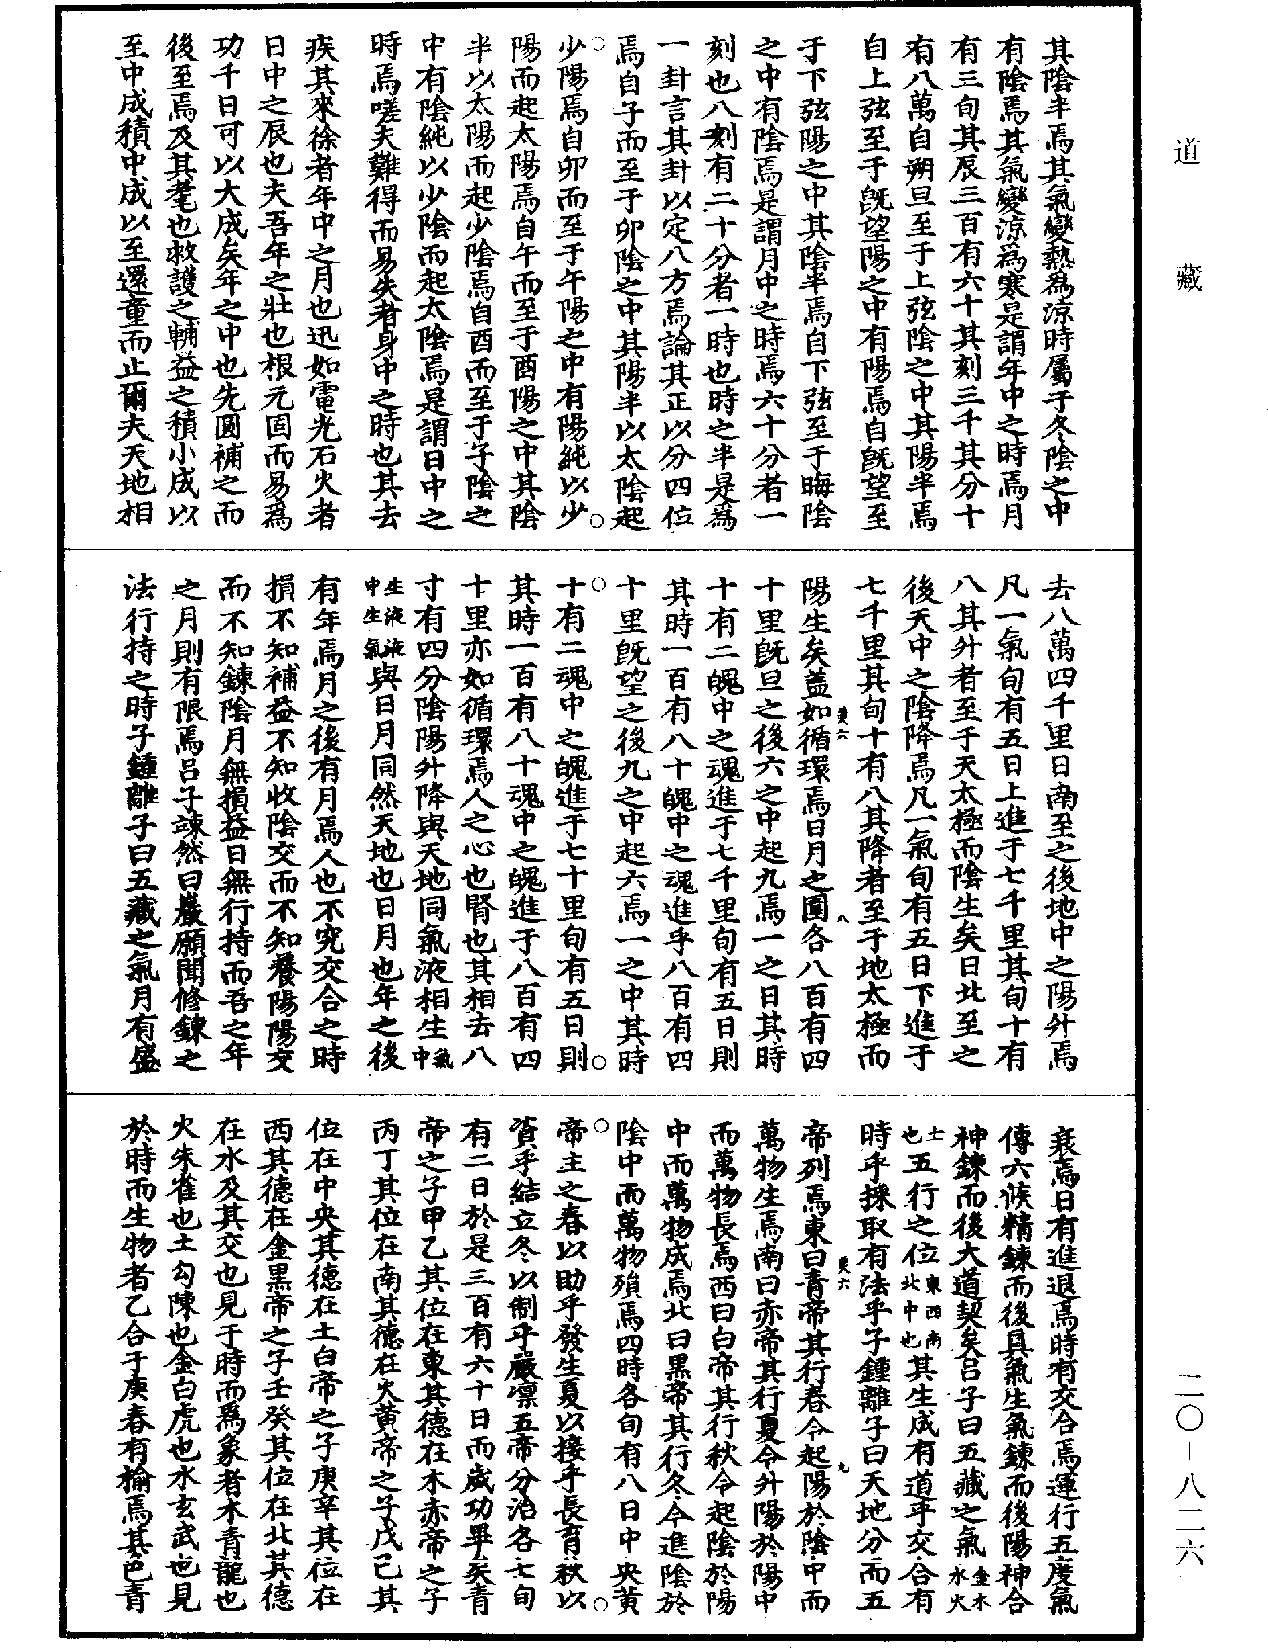 道藏
二〇—八二六
其陰半焉其氣變熱為涼時屬于冬陰之中
有陰焉其氣變涼為寒是謂年中之時焉月
有三旬其辰三百有六十其刻三千其分十
有八萬自朔旦至于上弦陰之中其陽半焉
自上弦至于既望陽之中有陽焉自既望至
于下弦陽之中其陰半焉自下弦至于晦陰
之中有陰焉是謂月中之時焉六十分者一
刻也八刻有二十分者一時也時之半是為
一卦言其卦以定八方焉論其正以分四位
焉自子而至于卯陰之中其陽半以太陰起
少陽焉自卯而至于午陽之中有陽純以少
陽而起太陽焉自午而至于酉陽之中其陰
半以太陽而起少陰焉自酉而至于子陰之
中有陰純以少陰而起太陰焉是謂日中之
時焉嗟夫難得而易失者身中之時也其去
疾其來徐者年中之月也迅如電光石火者
日中之辰也夫吾年之壯也根元固而易為
功千日可以大成矣年之中也先圓補之而
後至焉及其耄也救護之輔益之積小成以
至中成積中成以至還童而止爾夫天地相
去八萬四千里日南至之後地中之陽升焉
凡一氣旬有五日上進于七千里其旬十有
八其升者至于天太極而陰生矣日北至之
後天中之陰降焉凡一氣旬有五日下進于
七千里其旬十有八其降者至于地太極而
陽生矣蓋如循環焉日月之圓各八百有四
十里既旦之後六之中起九焉一之日其時
十有二魄中之魂進于七千里旬有五日則
其時一百有八十魄中之魂進乎八百有四
十里既望之後九之中起六焉一之中其時
十有二魂中之魄進于七十里旬有五日則
其時一百有八十魂中之魄進于八百有四
十里亦如循環焉人之心也腎也其相去八
寸有四分陰陽升降與天地同氣液相生氣中
生液液中生氣與日月同然天地也日月也年之後
有年焉月之後有月焉人也不究交合之時
損不知補益不知收陰交而不知養陽陽交
而不知鍊陰月無損益日無行持而吾之年
之月則有限焉呂子竦然曰巖願聞修鍊之
法行持之時子鍾離子曰五藏之氣月有盛
衰焉日有進退焉時有交合焉運行五度氣
傳六候精鍊而後具氣生氣鍊而後陽神合
神鍊而後大道契矣呂子曰五藏之氣金木水火
土也五行之位東西南北中也其生成有道乎交合有
時乎採取有法乎子鍾離子曰天地分而五
帝列焉東曰青帝其行春令起陽於陰中而
萬物生焉南曰赤帝其行夏令升陽於陽中
而萬物長焉西曰白帝其行秋令起陰於陽
中而萬物成焉北曰黑帝其行冬令進陰於
陰中而萬物殞焉四時各旬有八日中央黃
帝主之春以助乎發生夏以接乎長育秋以
資乎結立冬以制乎嚴凛五帝分治各七旬
有二日於是三百有六十日而歲功畢矣青
帝之子甲乙其位在東其德在木赤帝之子
丙丁其位在南其德在火黃帝之子戊己其
位在中央其德在土白帝之子庚辛其位在
西其德在金黑帝之子壬癸其位在北其德
在水及其交也見于時而為象者木青龍也
火朱雀也土勾陳也金白虎也水玄武也見
於時而生物者乙合于庚春有榆焉其色青